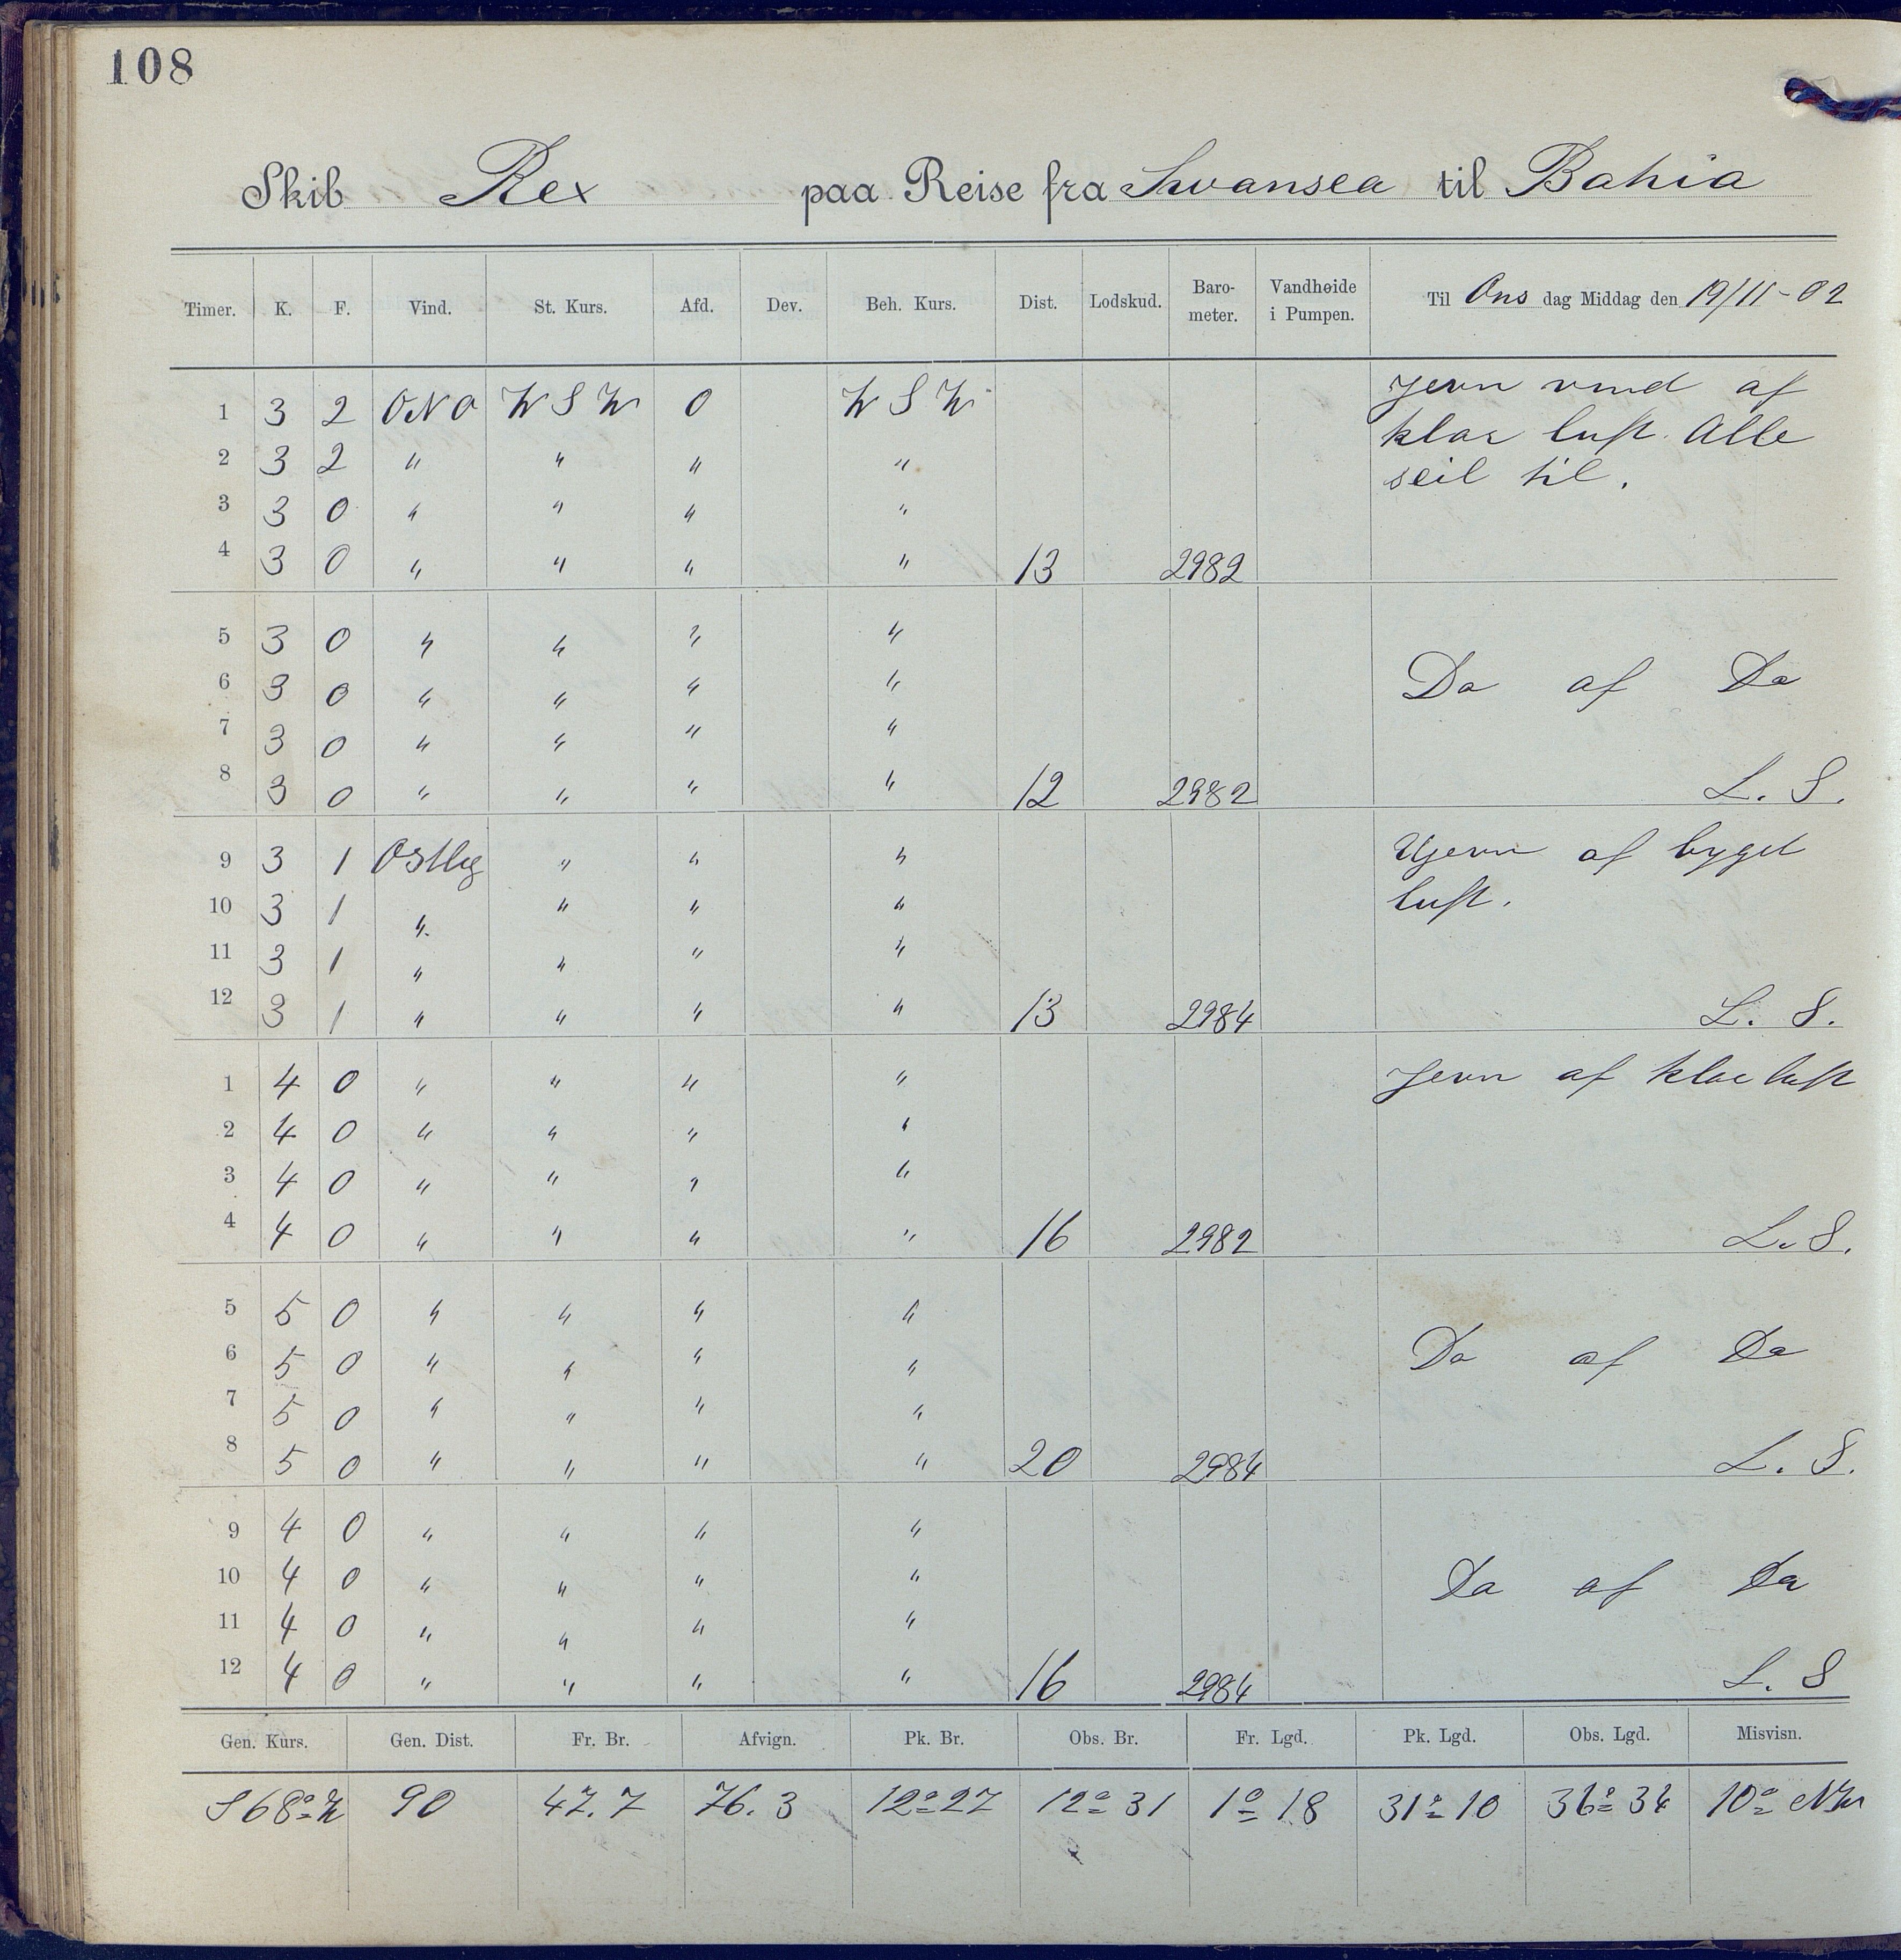 108
Skib Rex paa Reise fra Swansea til Bahia
Timer. K. F. Vind. St. Kurs. Afd. Dev. Beh. Kurs. Dist. Lodskud. Baro-meter. Vandhøide i Pumpen. Til Ons dag Middag den 19/11-02
1 3 2 ONO W S W 0 W S W Jevn vind af
klar luft. Alle
2 3 2 " " " " seil til.
3 3 0 " " " "
4 3 0 " " " " 13 2982
5 3 0 " " " "
6 3 0 " " " " Do af Do
7 3 0 " " " "
8 3 0 " " " " 12 2982 L. S.
9 3 1 Ostlig " " " Ujevn af byget
10 3 1 " " " " luft.
11 3 1 " " " "
12 3 1 " " " " 13 2984 L. S.
1 4 0 " " " " Jevn af klar luft
2 4 0 " " " "
3 4 0 " " " "
4 4 0 " " " " 16 2982 L. S.
5 5 0 " " " "
6 5 0 " " " " Do af Do
7 5 0 " " " "
8 5 0 " " " " 20 2984 L. S.
9 4 0 " " " "
10 4 0 " " " " Do af Do
11 4 0 " " " "
12 4 0 " " " " 16 2984 L. S
Gen. Kurs. Gen. Dist. Fr. Br. Afvign. Pk. Br. Obs. Br. Fr. Lgd. Pk. Lgd. Obs. Lgd. Misvisn.
S 68° W 90 47.7 76.3 12° 27 12° 31 1° 18 31° 10 36° 34 10° NW